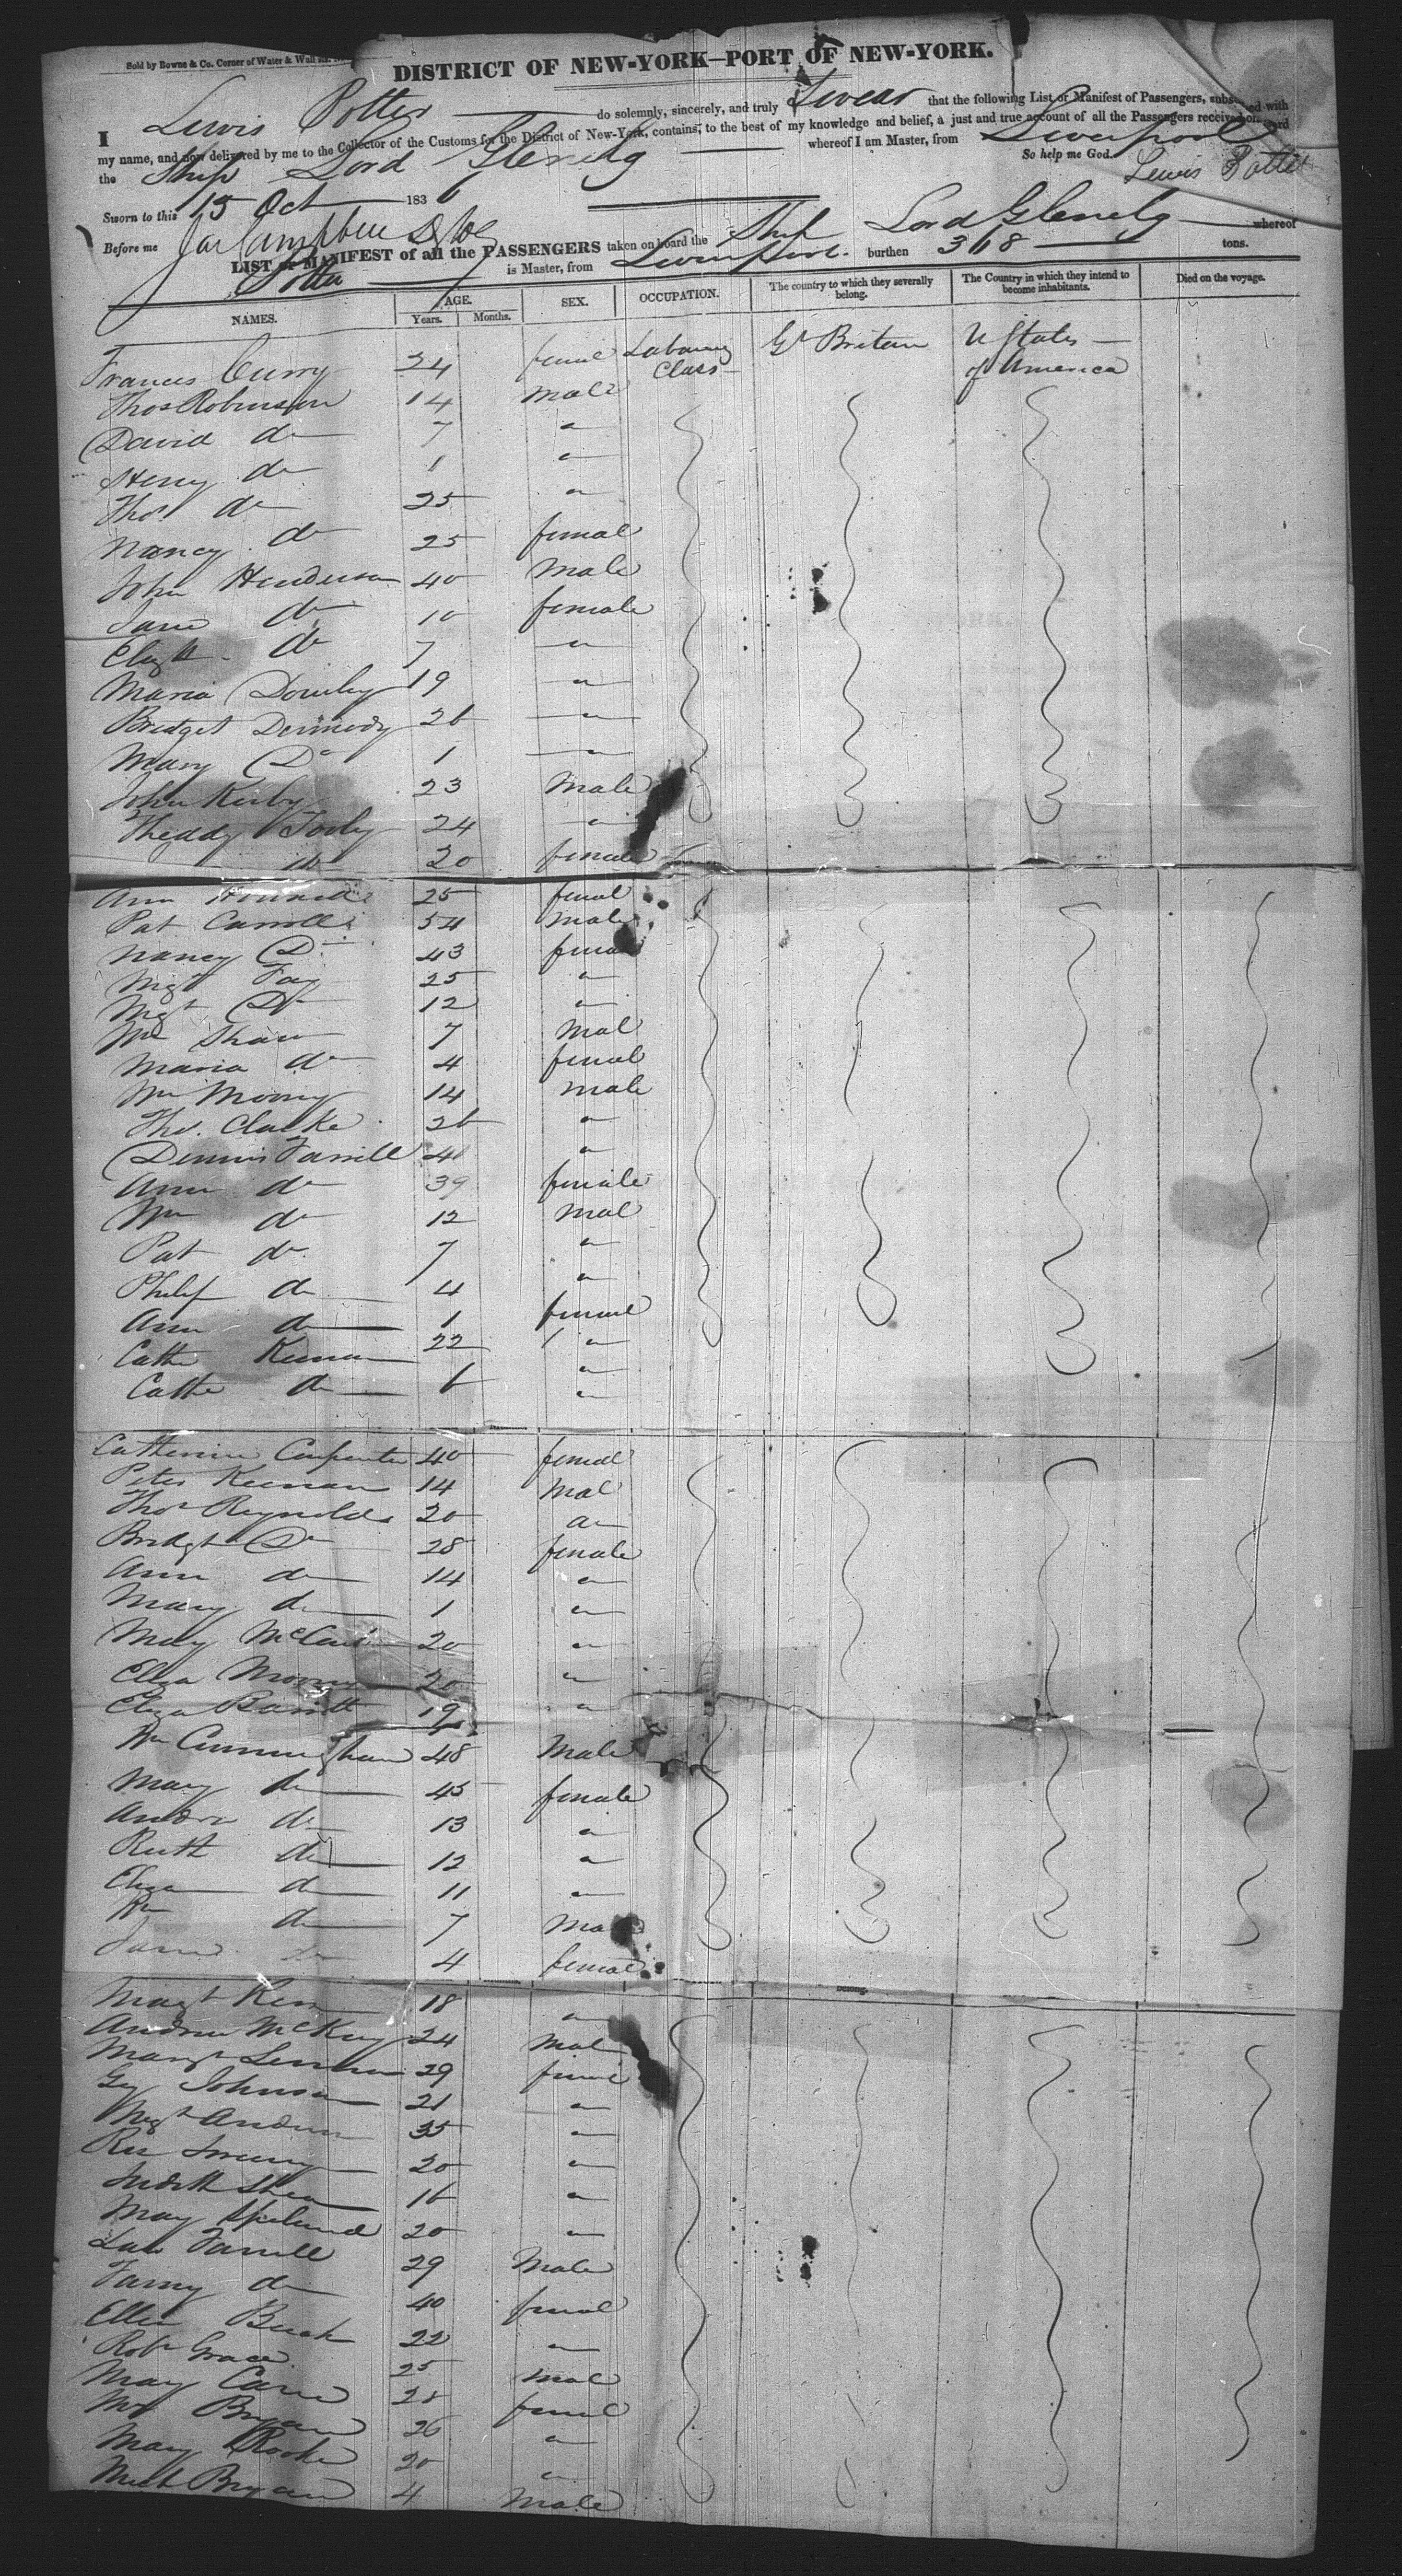 Sold by Bowne & Co. Corner of Water & Wall sts.
DISTRICT OF NEW-YORK—PORT OF NEW-YORK.
I Lewis Potter do solemnly, sincerely, and truly Swear that the following List or Manifest of Passengers, subscribed with
my name, and now delivered by me to the Collector of the Customs for the District of New-York, contains, to the best of my knowledge and belief, a just and true account of all the Passengers received on board
the Ship Lord Glenelg whereof I am Master, from Liverpool
So help me God.
Lewis Potter
Sworn to this 15 Oct 1836
Before me Jas Campbell
LIST or MANIFEST of all the PASSENGERS taken on board the Ship Lord Glenelg whereof
Potter is Master, from Liverpool. burthen 368 tons.
NAMES. AGE. Years. Months. SEX. OCCUPATION. The country to which they severally belong. The Country in which they intend to become inhabitants. Died on the voyage.
Frances Curry 24 female Labouring Class Gt Britain U States of America
Thos Robinson 14 Male
David do 7 "
Henry do 1 "
Thos. do 25 "
Nancy do 25 female
John Henderson 40 Male
Jane do 10 female
Elizth do 7 "
Maria 19 "
Bridget Dermody 26 "
Mary Do 1 "
John Kirby 23 Male
Theddy 24 "
do 20 female
Ann 25 female
Pat Carroll 54 Male
Nancy Do 43 female
Mgt Fay 25 "
Mgt Do 12 "
Wm Shaw 7 Mal
Maria do 4 female
Wm Mooney 14 male
Tho. Clarke 26 "
Dennis Farrell 40 "
Ann do 39 female
Wm do 12 Mal
Pat do 7 "
Philip do 4 "
Ann do 1 female
Cathe Keenan 22 "
Cathe do 6 "
"
Catherine Carpenter 40 female
Peter Keenan 14 Mal
Thos Reynolds 20 do
Bridgt Do 28 female
Ann do 14 "
Mary do 1 "
May 20 "
Eliza 20 "
Eliza Barrett 19 "
Wm Cunningham 48 Male
Mary do 45 female
Andw do 13 "
Ruth do 12 "
Eliza do 11 "
Wm do 7 Male
Jane do 4 female
belong.
Magt Kern 18 "
Andrew McKey 24 Mal
Margt 29 female
Geo Johnson 21 "
Mgt 35 "
20 "
Judith Shea 16 "
May 20 "
Farrell 29 Male
Fanny do 40 femal
Ellen 22 "
Robt Grace 25 Mal
May 28 femal
Bryan 26 "
Mary Rooke 20 "
Mich Bryan 4 Male